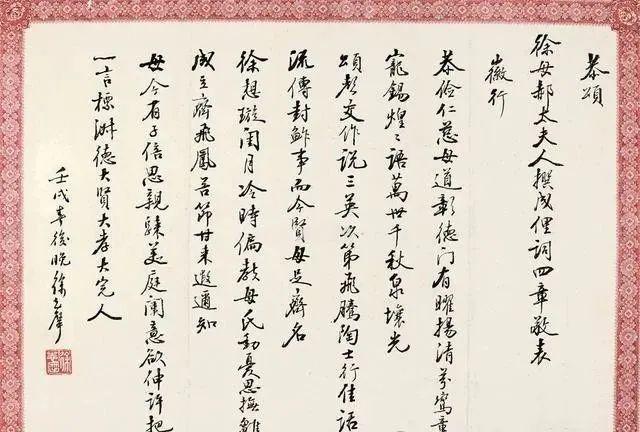 恭頌
徐母郝太夫人撰成俚詞四章敬表
徽行
恭儉仁慈母道彰德門有曜揚清芬鸞章
寵錫煌〻語萬世千秋泉壤光
頌声交作說三英次第飛騰陶士行佳話
流傳封鮓事而今賢母足齊名
徐想璇閨月冷時偏教母氏動憂思撫雛
成立齊飛鳳苦節甘來遐邇知
母今有子倍思親騄美庭闈意欲伸許把
一言標淑德大賢大孝大完人
壬戌年後晚徐